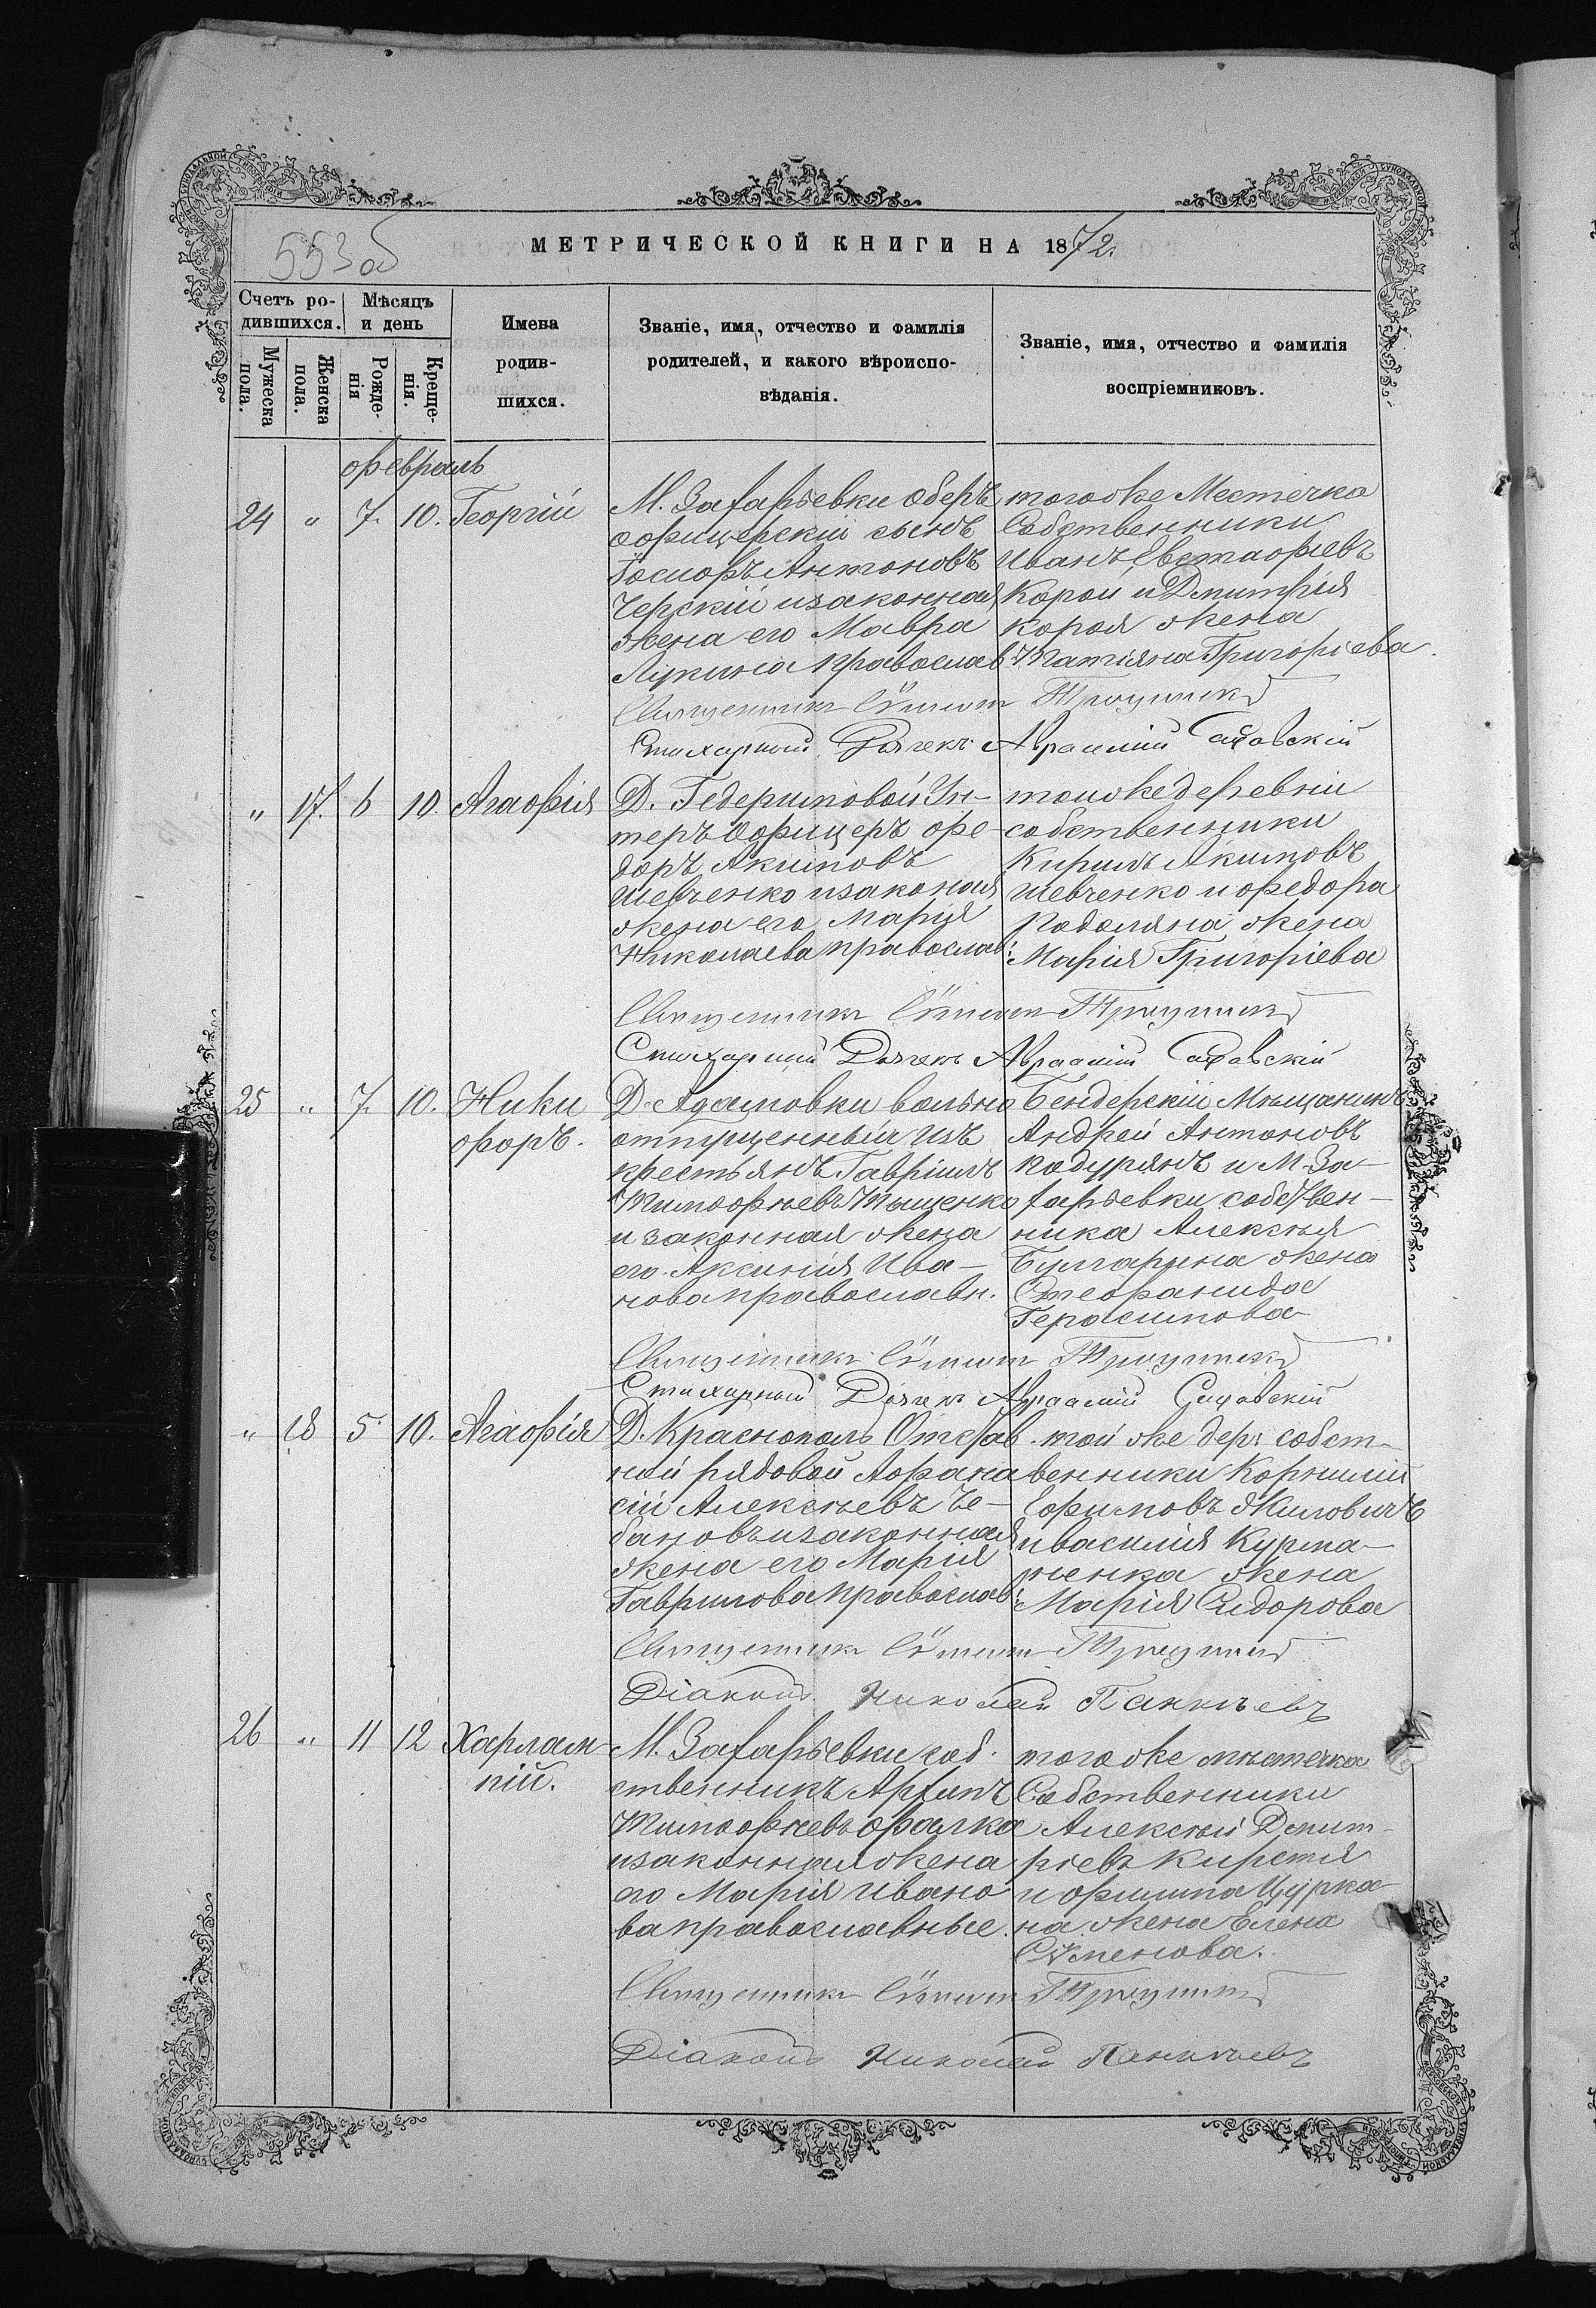 553об
МЕТРИЧЕСКОЙ КНИГИ НА 1872.
Счетъ родившихся.
Мѣсяцъ и день
Мужеска пола.
Женска пола.
Рожденія
Крещенія.
Имена родившихся.
Званіе, имя, отчество и фамилія родителей, и какого вѣроисповѣданія.
Званіе, имя, отчество и фамилія воспріемниковъ.
февраль
24 " 7. 10. Георгій
М. Захарьевки Оберъ
офицерскій сынъ
Іосифъ Антоновъ
Черскій и законная
жена его Мавра
Лукина православ
тогоже Местечка
Собственники
Иванъ Евстафіевъ
Корой и Дмитрія
короя жена
Татіяна Григоріева.
Священникъ Троицкій
Стихарный Дьячекъ Авраамій Садовскій
" 17. 6 10. Агафія
Д. Гедеримовой Ун-
теръ Офицеръ Фе-
доръ Акимовъ
Шевченко и законая
жена его Марія
Николаева православ:
тоиже деревни
собственники
Кирилъ Якимовъ
Шевченко и Федора
Подоляна жена
Марія Григоріева
Священникъ Троицкій
Стихарный Дьячекъ Авраамій Садовскій
25 " 7. 10. Ники
форъ.
Д. Адамовки вольно
отпущенный изъ
крестьянъ Гавріилъ
Тимофѣевъ Тыщенко
и законная жена
его Аксинія Ива-
нова православн.
Бендерскій Мѣщанинъ
Андрей Антоновъ
Кодурянъ и М. За-
харьевки собствен-
ника Алексѣя
Булгарина жена
Стефанида
Герасимова
Священникъ Троицкій
Стихарный Дьячекъ Авраамій Садовскій
" 18 5. 10. Агафія
Д. Краснополь Отстав
ной рядовой Афана
сій Алексѣевъ Че-
бановъ и законная
жена его Марія
Гаврилова православ:
той же дер: собст-
венники Корнилій
Ефимовъ Якимовичъ
и василія Курма-
ненка жена
Марія Сидорова
Священникъ Троицкій
Діаконъ Николай
26 " 11 12 Харлам-
пій.
М. Захарьевки соб-
ственникъ Архипъ
Тимофѣевъ Фалка
и законная жена
его Марія Ивано
ва православные.
тогоже мѣстечка
Собственники
Алексѣй Дмит-
ріевъ Кирстя
и Филипа Цурка-
на жена Елена
Семенова.
Священникъ Троицкій
Діаконъ Николай